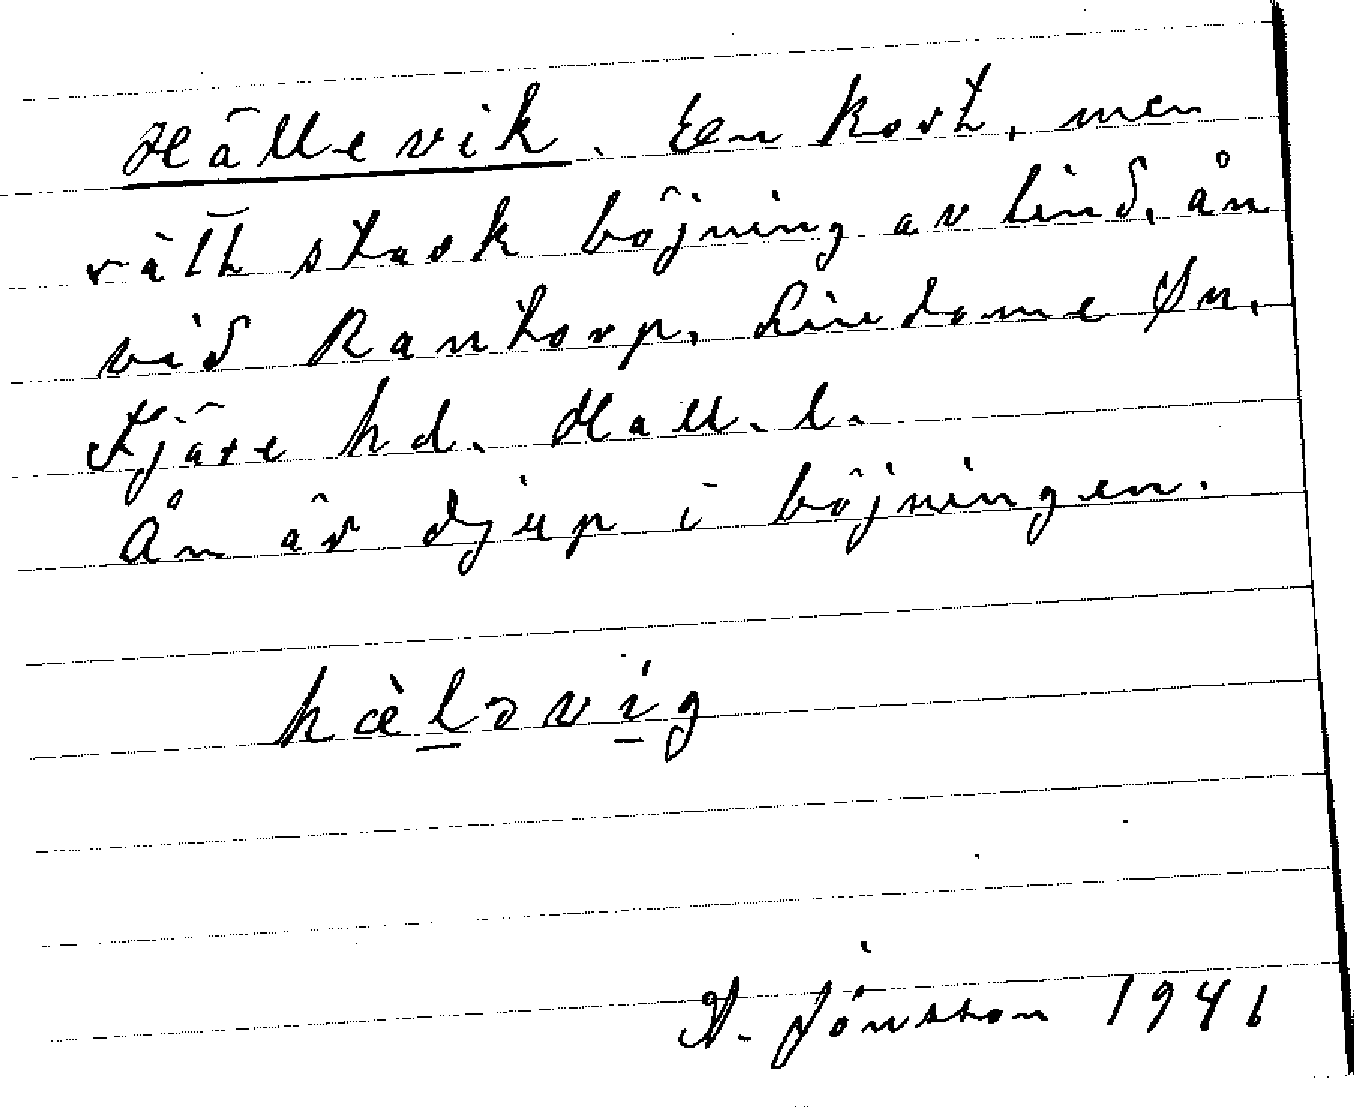 Hällevik. En kort, men
rätt stark böjning av lind. ån
vid Rantorp, Lindome sn,
Fjäre hd. Hall. l.
Ån är djup i böjningen.
hæ̀ləvíg
A. Jönsson 1941